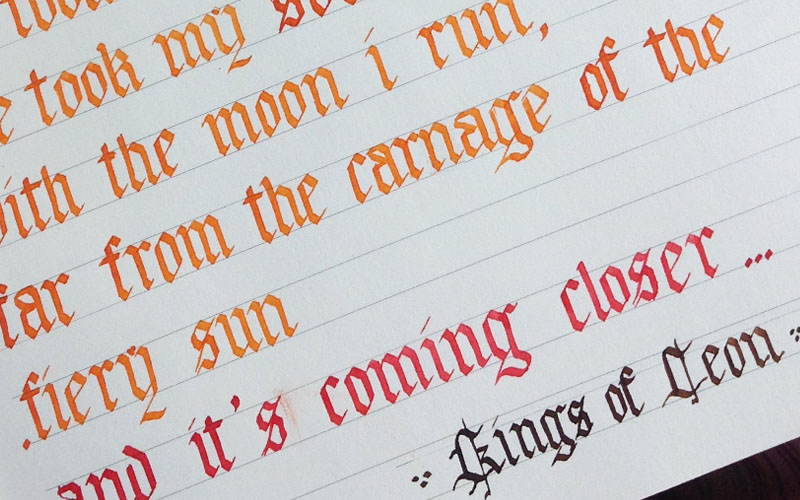 took my
with the moon i run,
far from the carnage of the
fiery sun
and it's coming closer ...
Kings of Leon